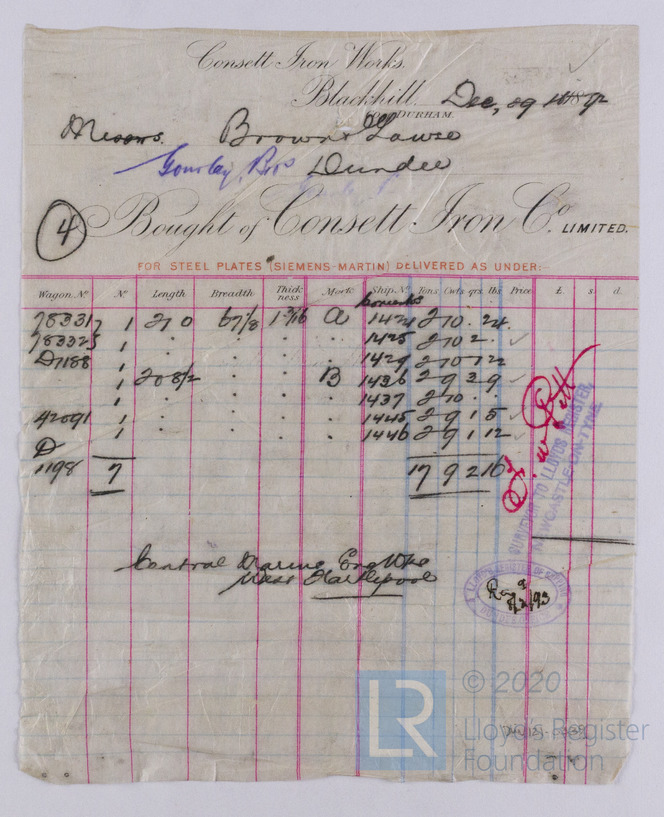 Consett Iron Works.
Blackhill. Dec, 29 1892
Co. DURHAM.
Messrs. Brown & Lawse
Gourlay, Bros Dundee
4
Bought of Consett Iron Co. LIMITED.
FOR STEEL PLATES (SIEMENS-MARTIN) DELIVERED AS UNDER:-
Wagon. No. No. Length Breadth Thickness Mark Ship No. Tons, Cwts. qrs. lbs. Price £. s. d.
78331 1 27 0 67 1/8 1 3/16 A 1424 2 10 . 24.
783325 1 . . . . 1425 2 10 2 .
D7188 1 . . . . 1429 2 10 0 12
1 20 8 1/2 . . B 1436 2 9 3 9
1 . . . . 1437 2 10 . .
42091 1 . . . . 1445 2 9 1 5
1 . . . . 1446 2 9 1 12
D
1198 7 17 9 2 16
SURVEYOR TO LLOYDS REGISTER,
NEWCASTLE-ON-TYNE
Central Marine Eng Wks
West Hartlepool
8/2/93
LR
© 2020
Lloyd's Register
Foundation